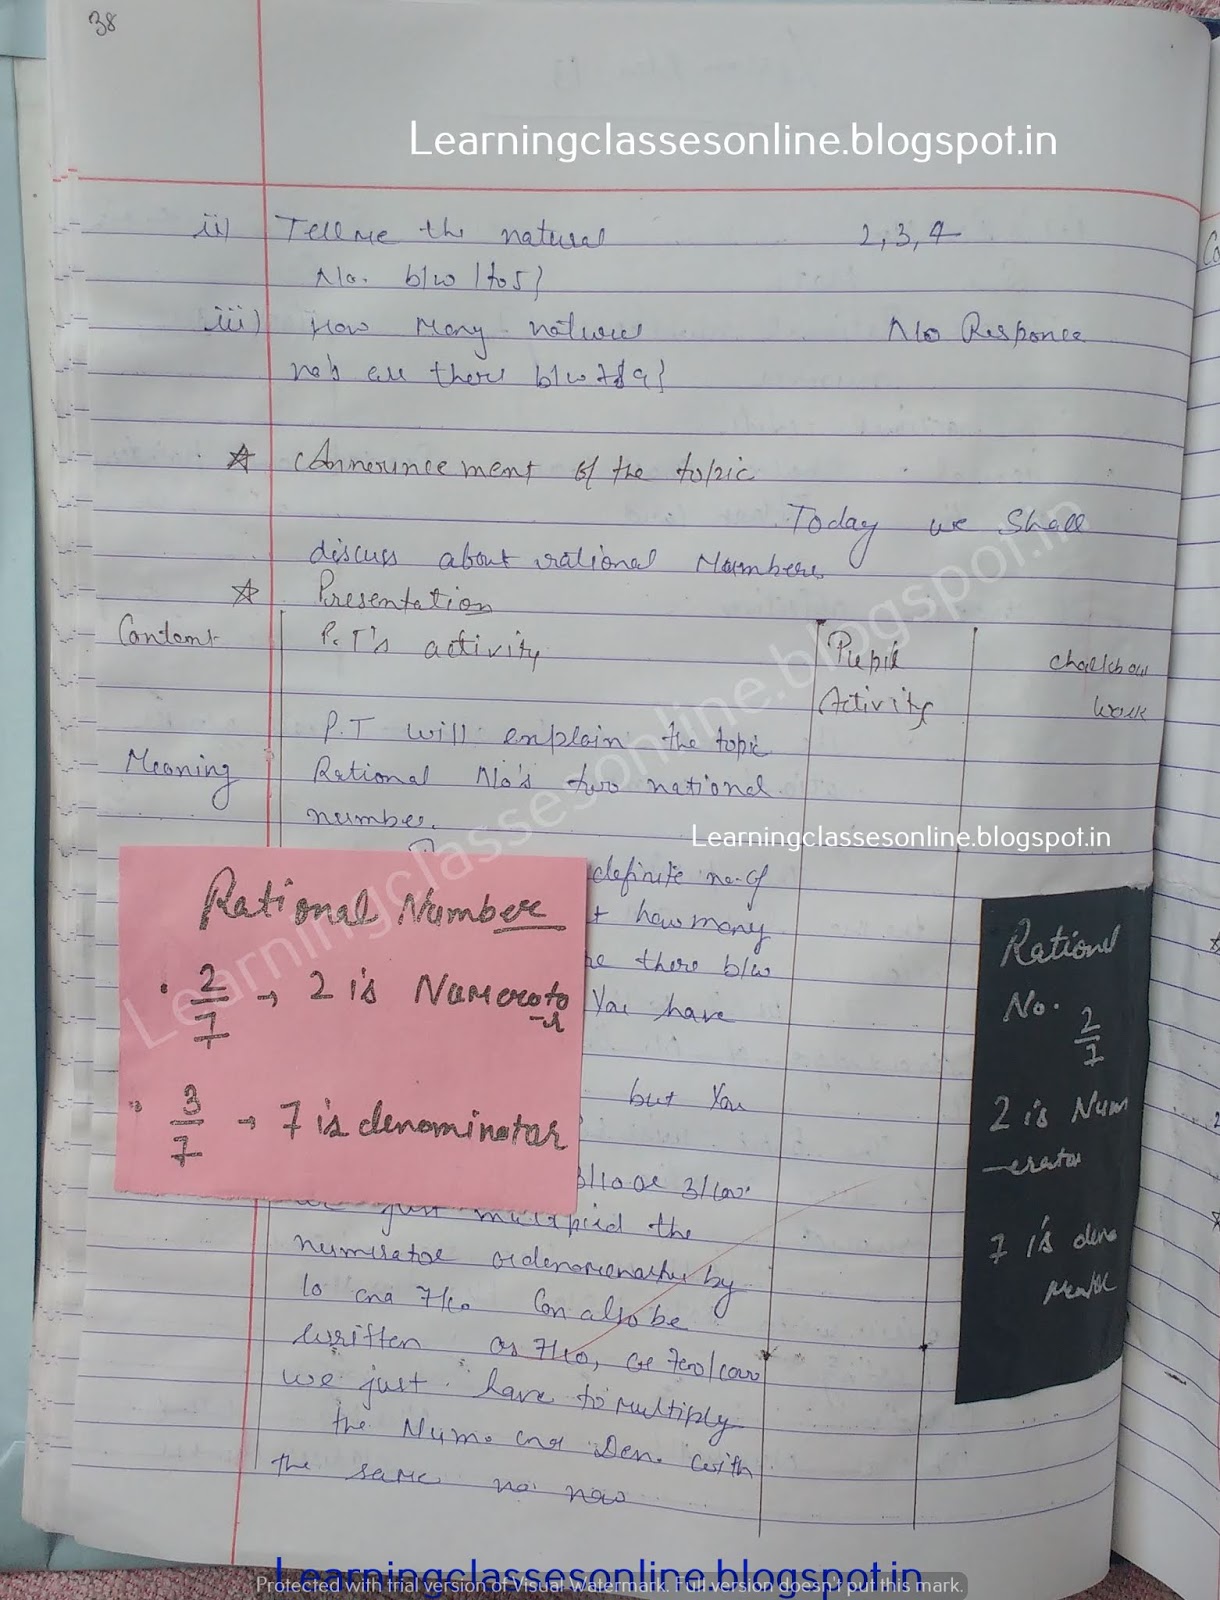 38
Learningclassesonline.blogspot.in
ii) Tell me the natural 2, 3, 4
No. b/w 1 to 5}
iii) How Many natural No Responce
no's are there b/w 7 & 9}
☆ Announcement of the topic
Today we Shall
discuss about rational Numbers
☆ Presentation
Content P.T's activity Pupil Activity chalkboar work
P.T will explain the topic
Meaning Rational No's two national
number.
Learningclassesonline.blogspot.in
definite no. of
how many
there b/w
You have
but You
3/10 or
just multipied the
numerator by
10 can also be
written as 7/10, or
we just have to multiply
the Num. and Den. with
the same no. now
Rational Number
• 2/7 → 2 is Numerato
-r
" 3/7 → 7 is denominator
Rational
No. 2/7
2 is Num
-erator
7 is deno
Learningclassesonline.blogspot.in
Learningclassesonline.blogspot.in
Protected with trial version of Visual Watermark. Full version doesn't put this mark.